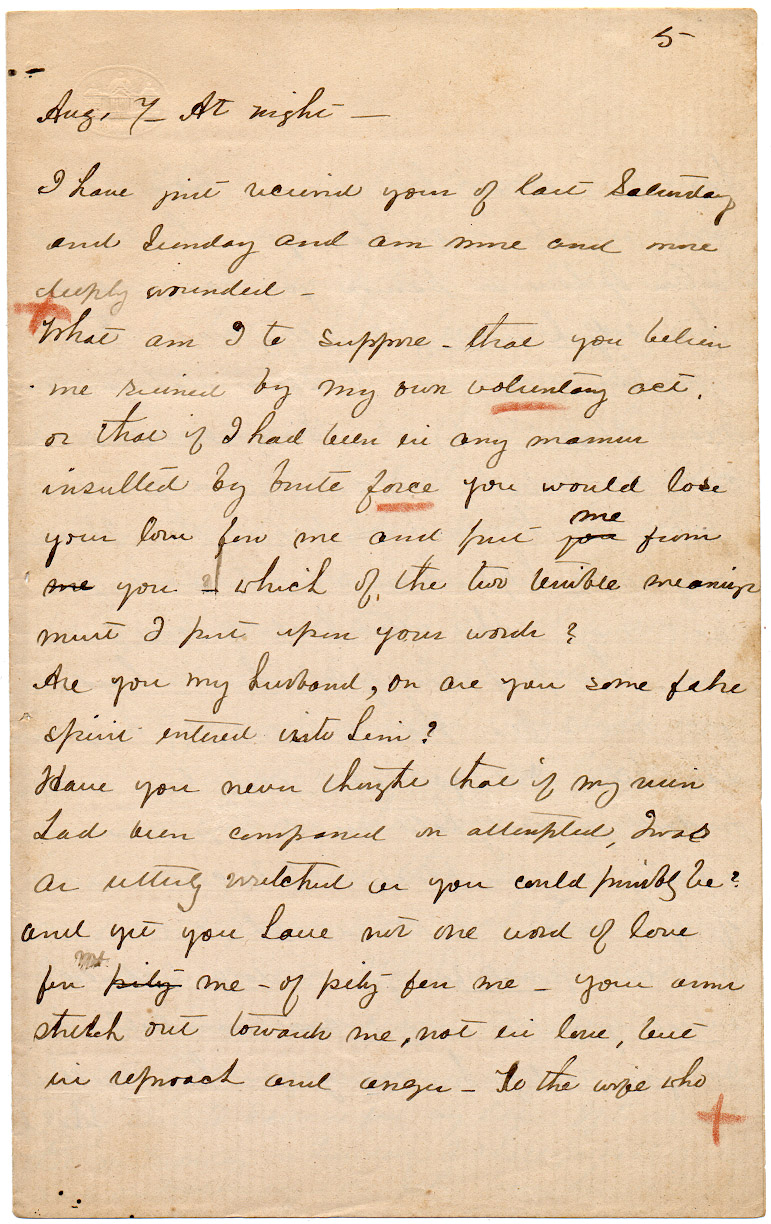 5
Aug. 7 — At night —
I have just received yours of last Saturday
and Sunday and am more and more
deeply wounded —
What am I to suppose — that you believe
me ruined by my own voluntary act,
or that if I had been in any manner
insulted by brute force you would lose
your love for me and put you me from
me you — which of the two terrible meanings
must I put upon your words?
Are you my husband, or are you some false
spirit entered into him?
Have you never thought that if my ruin
had been compassed or attempted, I was
as utterly wretched as you could possibly be?
and yet you have not one word of love
for pity me — of pity for me — your arms
stretch out towards me, not in love, but
in reproach and anger — To the wife who